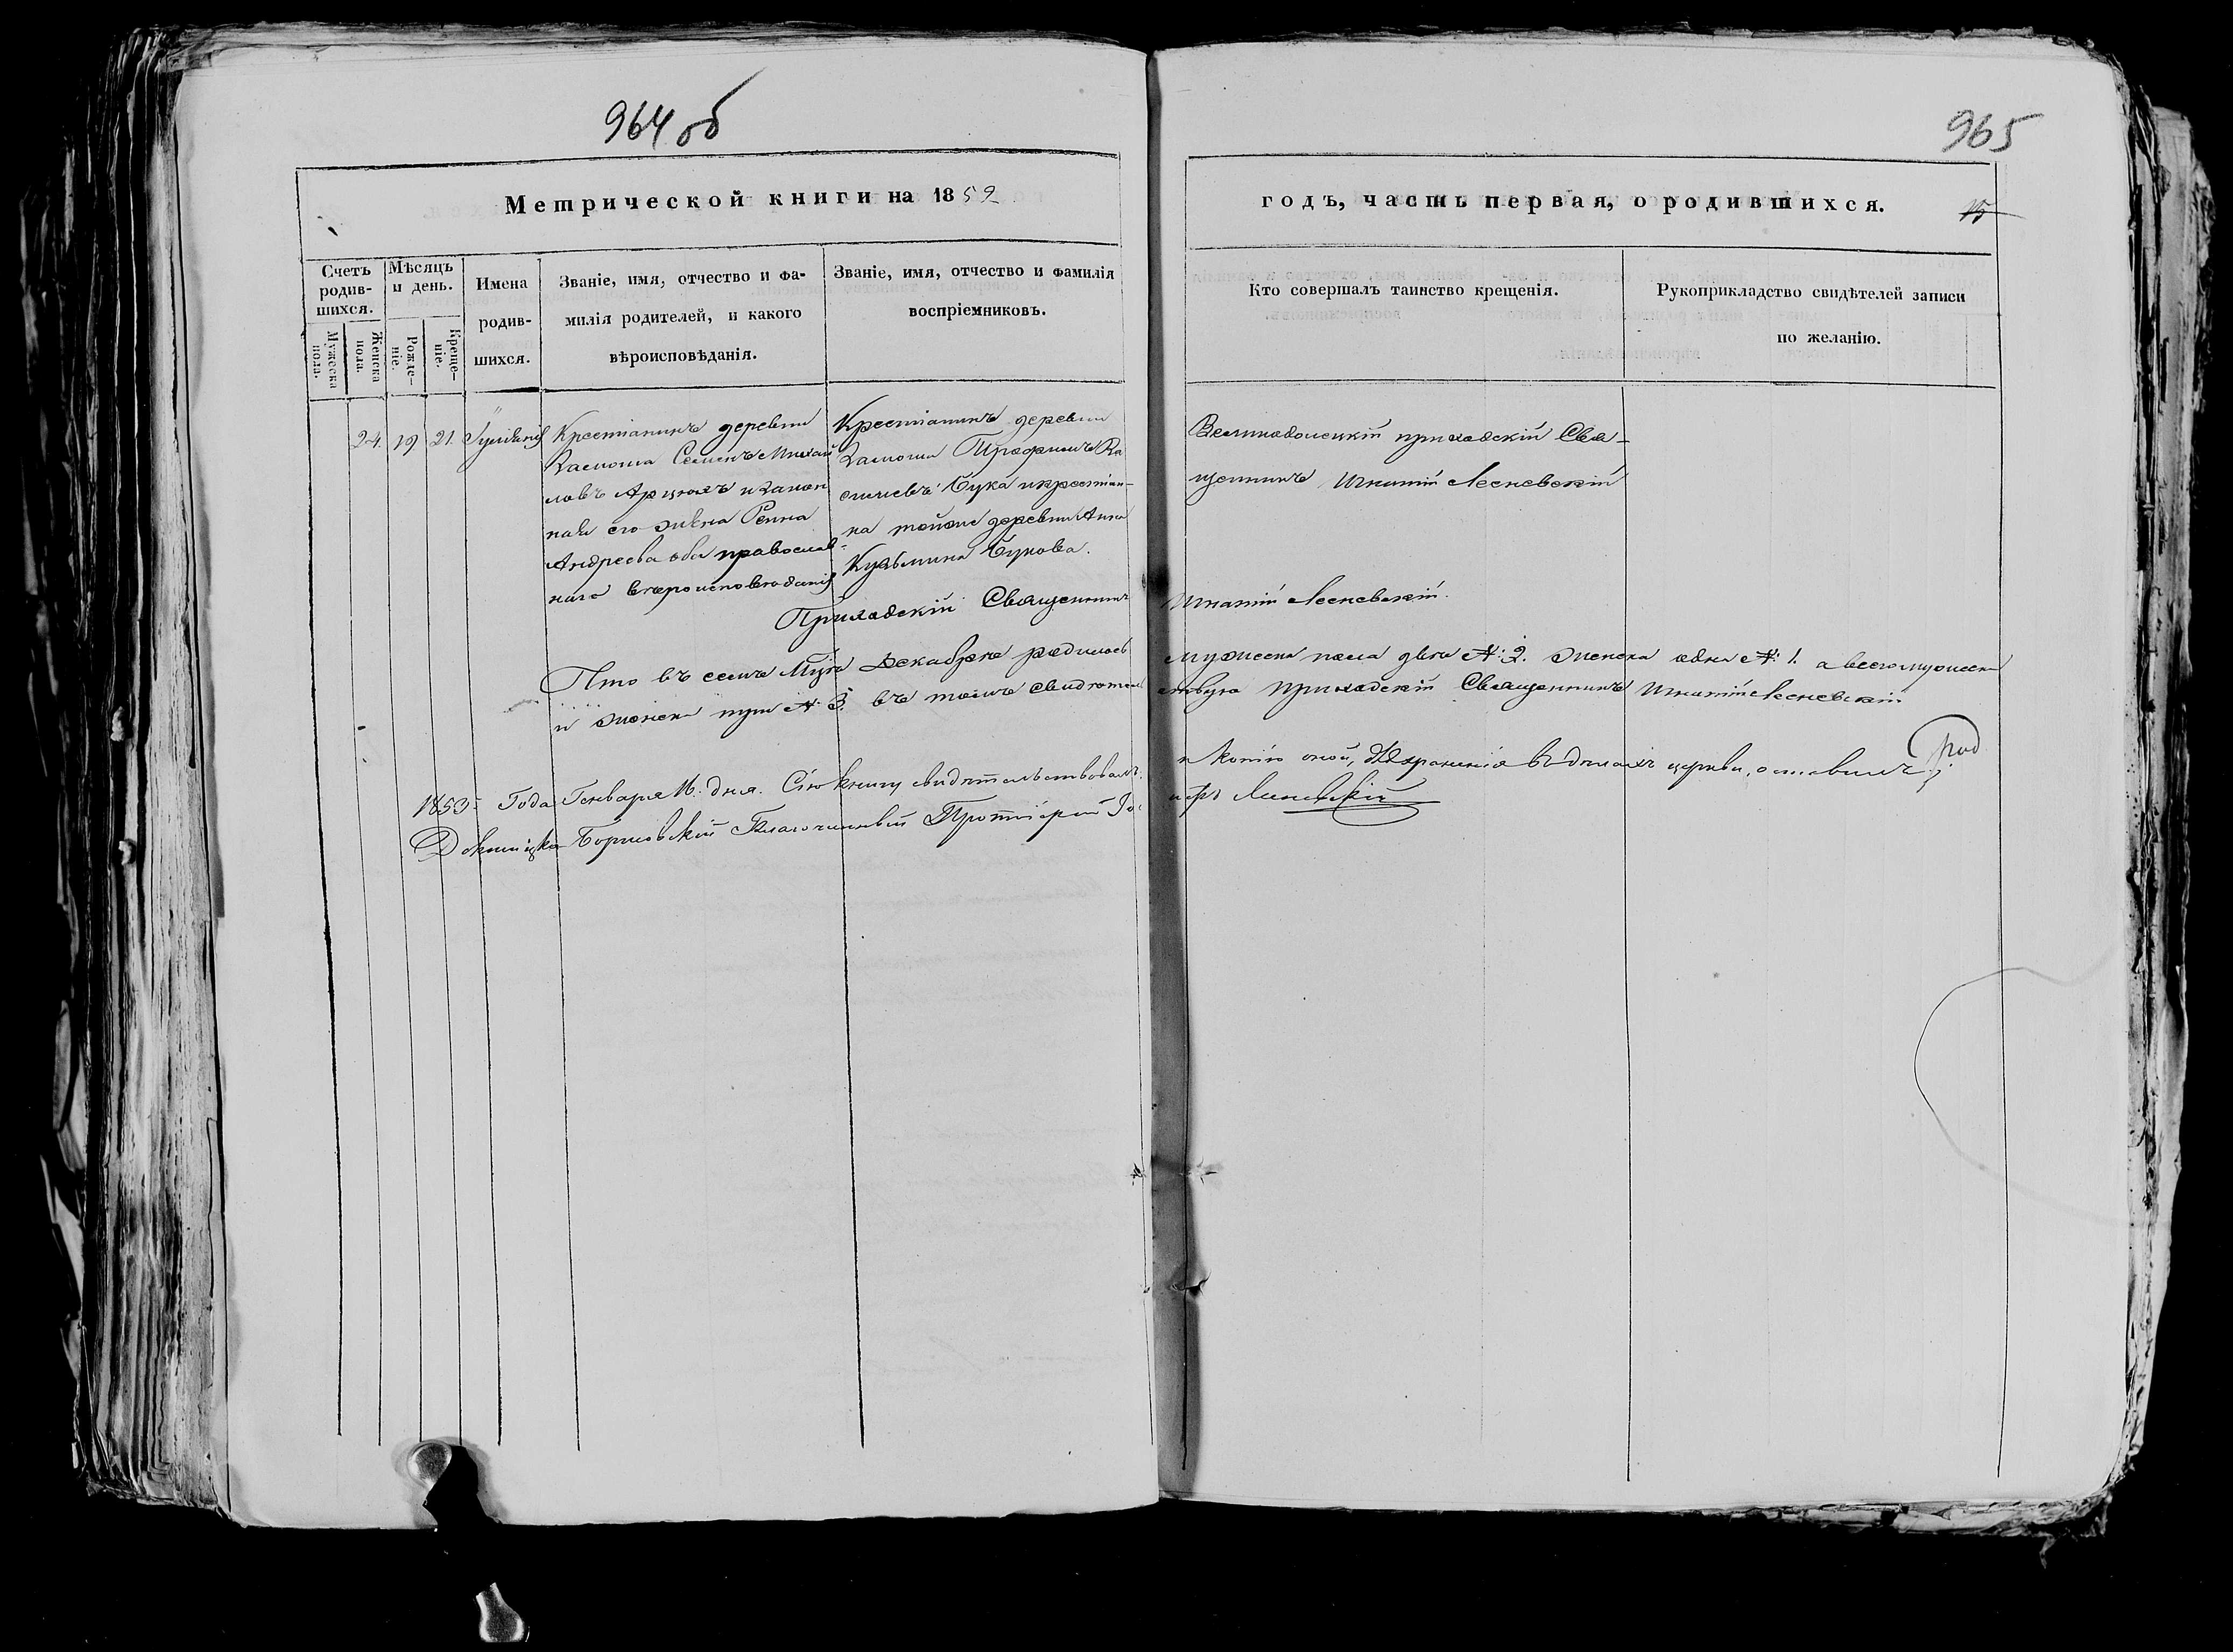 964 об
965
Метрической книги на 1852
годъ, часть первая, о родившихся.
15
Счетъ родив-шихся.
Мужеска пола.
Женска пола.
Мѣсяцъ и день.
Рожде-ніе.
Креще-ніе.
Имена
родив-
шихся.
Званіе, имя, отчество и фа-
милія родителей, и какого
вѣроисповѣданія.
Званіе, имя, отчество и фамилія
воспріемниковъ.
Кто совершалъ таинство крещенія.
Рукоприкладство свидѣтелей записи
по желанію.
24. 19 21. Іуліанія
Крестіанинъ деревни
Замошa Семенъ Михай
ловъ и закон
ная его жена
Андреева оба православ-
наго вѣроисповѣданія
Крестіанинъ деревни
Замоша Трофимъ
Бука и крестіан-
ка тойже деревни Анна
Кузьмина Букова.
Великодолецкій приходскій Свя-
щенникъ Игнатій Лесневскій
Приходскій Священникъ Игнатій Лесневскій.
Что въ семъ Мцѣ Декабрѣ родилось мужеска пола два №: 2. женска одна №: 1. а всего мужеска
и женска три № 3. въ томъ свидѣтельствую приходскій Священникъ Игнатій Лесневскій
1853 Года Генваря 16. дня. Сію книгу свидѣтельствовалъ и копію оной, для храненія въ дѣлахъ церкви, оставилъ
Докшицко Борисовскій Благочинный Протоіерей